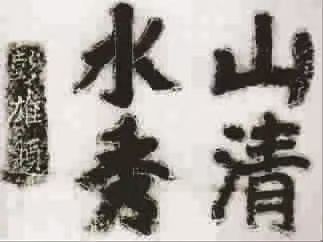 山清
水秀